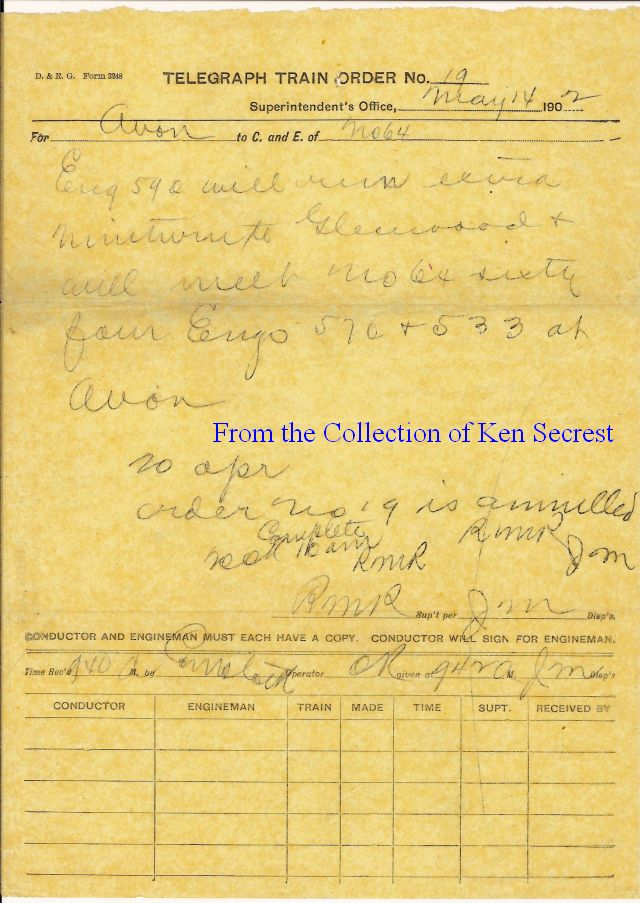 D. & R. G. Form 3248
TELEGRAPH TRAIN ORDER No. 19
Superintendent's Office, May 14 1902
For Avon to C. and E. of No 64
Eng 590 will run extra
Minturn to Glenwood &
will meet No 64 sixty
four Engs 570 & 533 at
Avon
From the Collection of Ken Secrest
order No 19 is annulled
Complete RMR
RMR JM
RMR Sup't per JM Disp's.
CONDUCTOR AND ENGINEMAN MUST EACH HAVE A COPY. CONDUCTOR WILL SIGN FOR ENGINEMAN.
Time Rec'd 940 A M. by Operator OK given at 942 A M. JM Disp's
CONDUCTOR ENGINEMAN TRAIN MADE TIME SUPT. RECEIVED BY